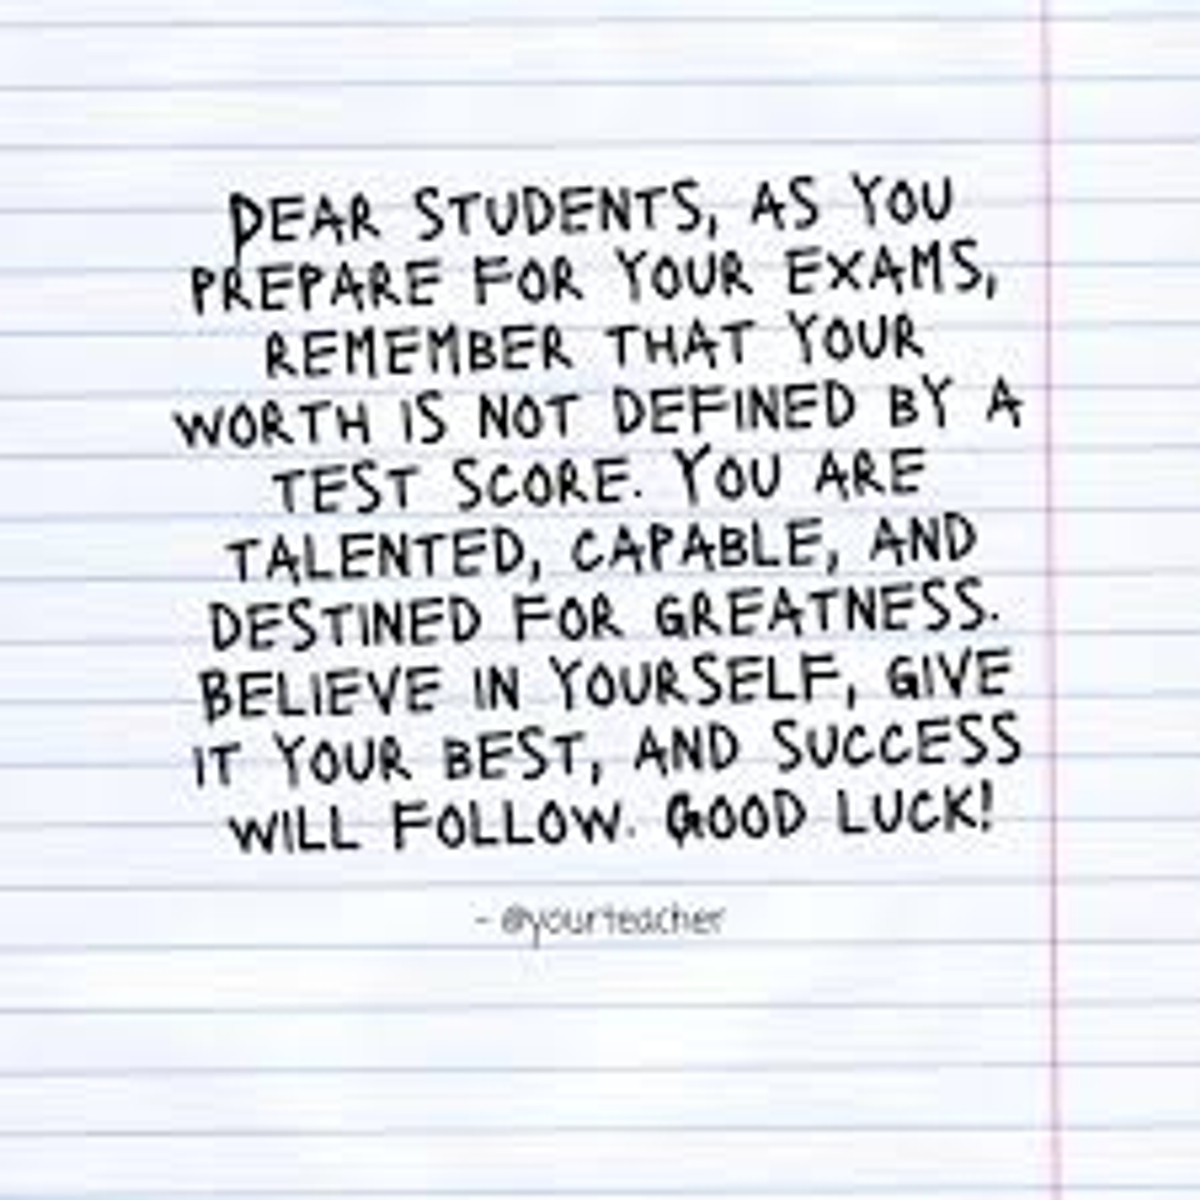 DEAR STUDENTS, AS YOU
PREPARE FOR YOUR EXAMS,
REMEMBER THAT YOUR
WORTH IS NOT DEFINED BY A
TEST SCORE. YOU ARE
TALENTED, CAPABLE, AND
DESTINED FOR GREATNESS.
BELIEVE IN YOURSELF, GIVE
IT YOUR BEST, AND SUCCESS
WILL FOLLOW. GOOD LUCK!
- @yourteacher